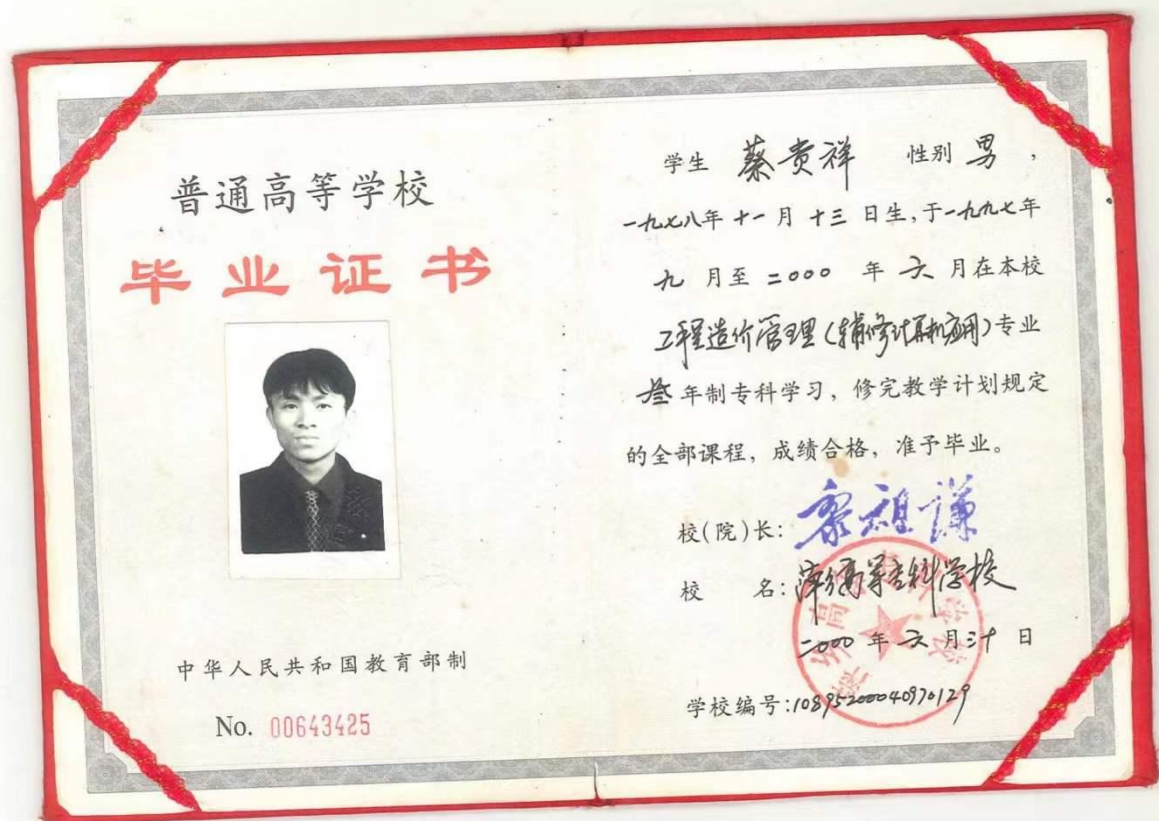 普通高等学校
毕业证书
中华人民共和国教育部制
No. 00643425
学生 蔡贵祥 性别 男，
一九七八年十一月十三日生，于一九九七年
九月至二000年六月在本校
工程造价管理（辅修计算机应用）专业
叁年制专科学习，修完教学计划规定
的全部课程，成绩合格，准予毕业。
校（院）长：黎祖谦
校 名：萍乡高等专科学校
二000年六月三十日
学校编号：108952000040970129